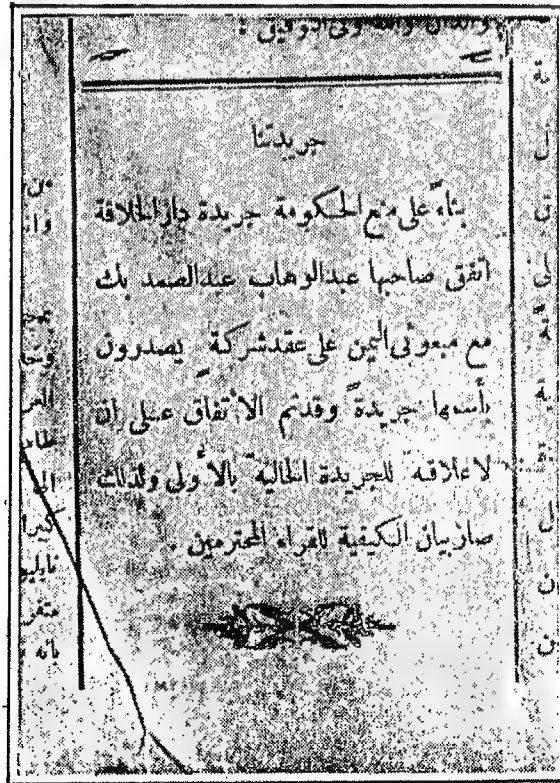 والله ولى التوفيق :
جريدتنا
بناءً على منع الحكومة جريدة دار الخلافة
اتفق صاحبها عبدالوهاب عبدالصمد بك
مع مبعوثى اليمن على عقد شركة يصدرون
بأسمها جريدة وقد تم الأتفاق على ان
لاعلاقة للجريدة الحالية بالأولى ولذلك
صار بيان الكيفية للقراء المحترمين .